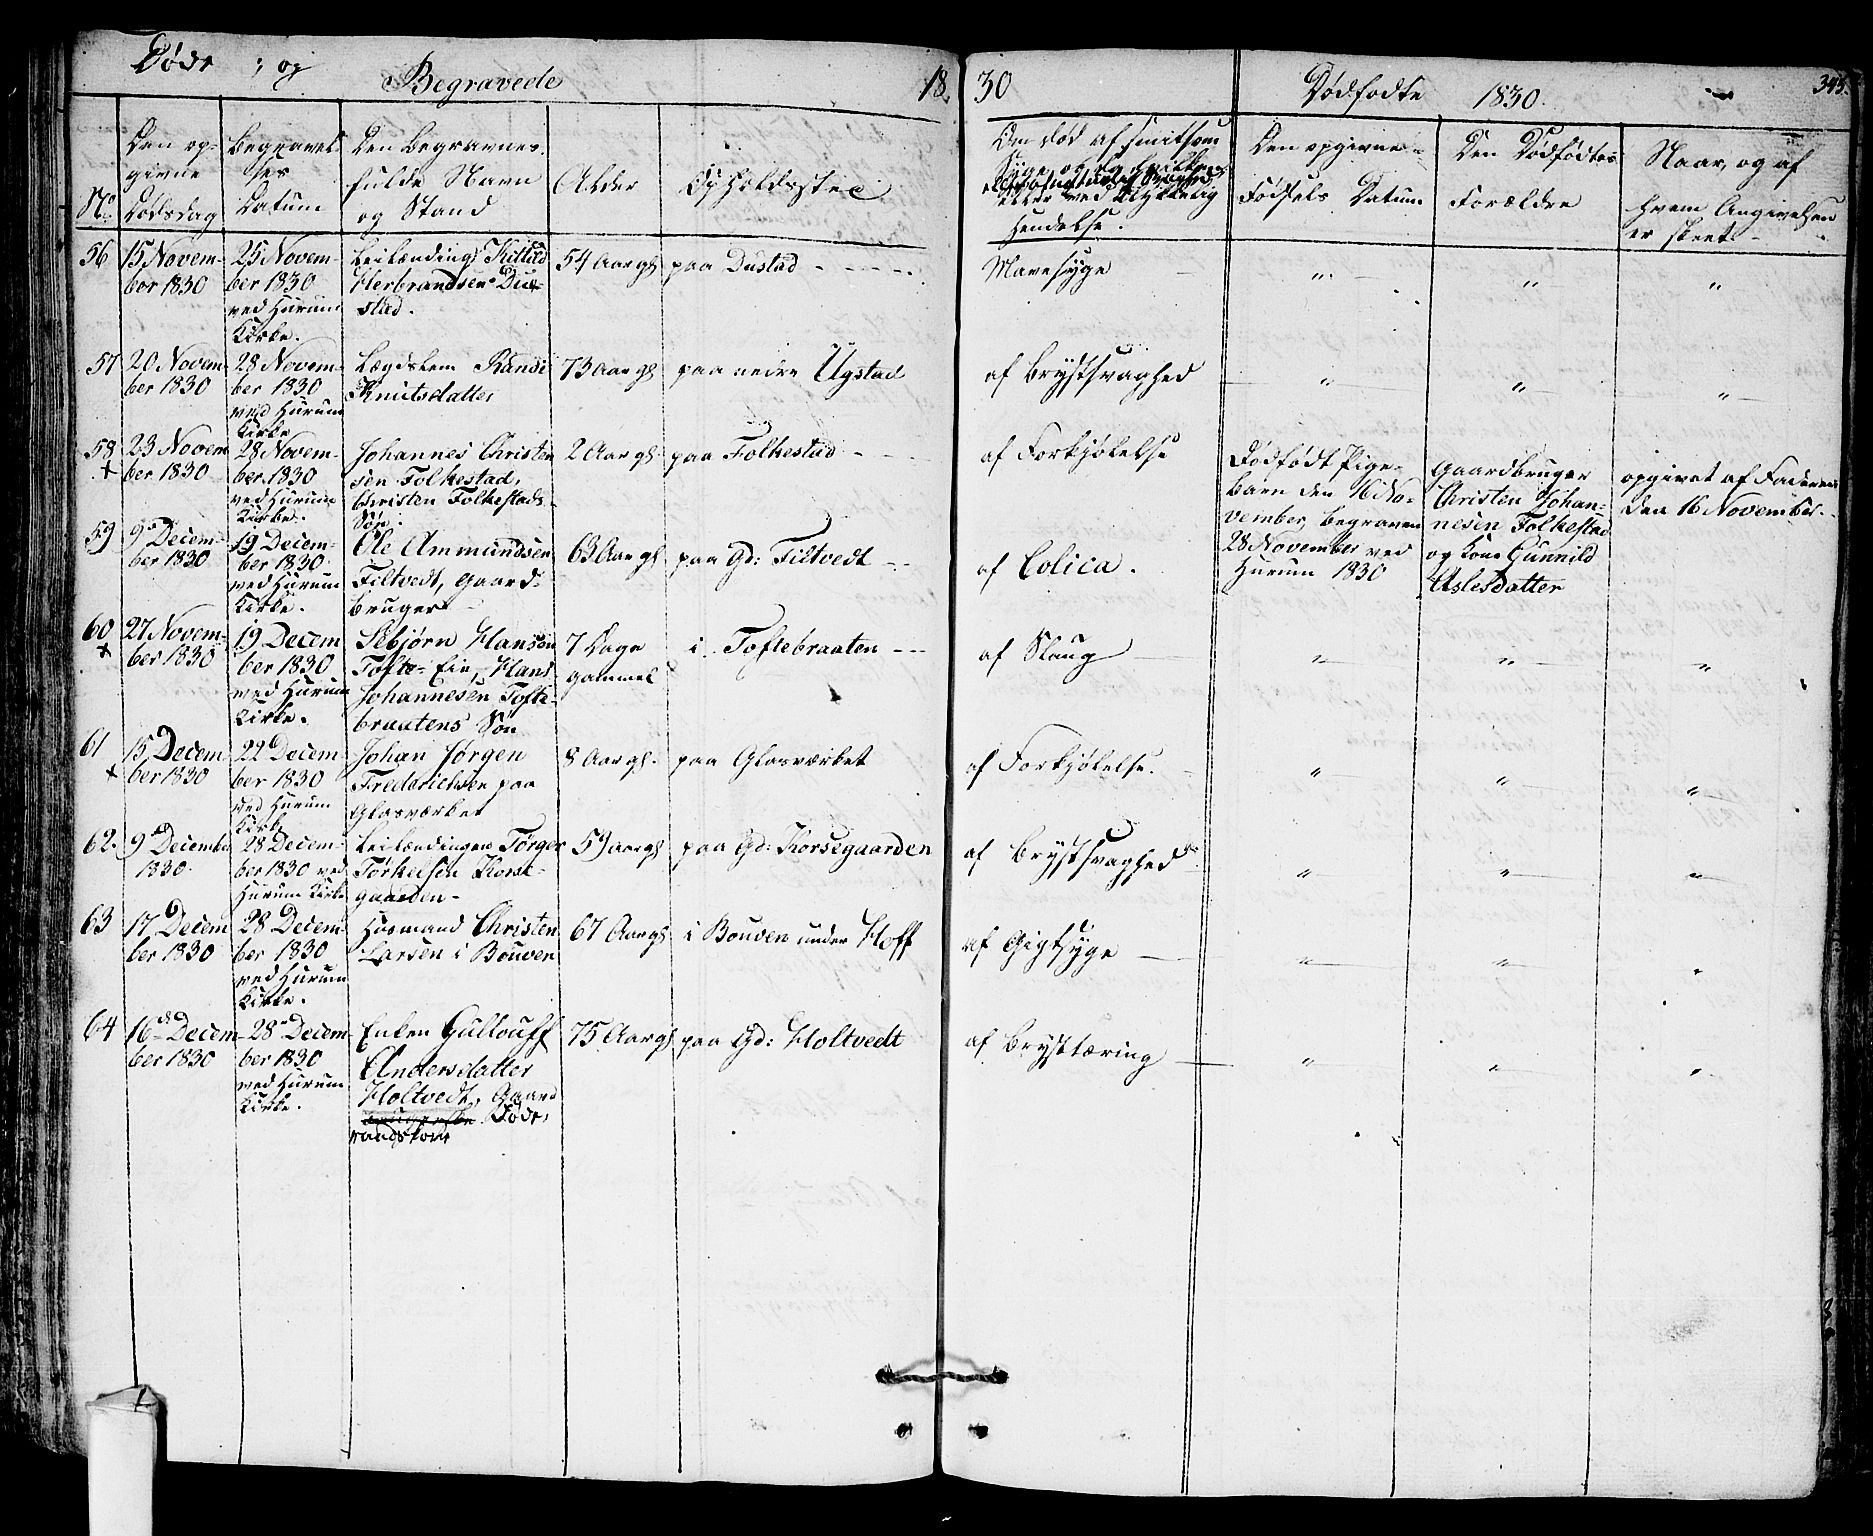 Døde og Begravede 18 30 Dødfødte 1830. 345.
No
Den op-
givne
Dødsdag
Begravel-
ses
Datum
Den Begravnes
fulde Navn
og Stand
Alder
Opholdssted
Om død af smitsom
Syge, og
eller ved Ulykkelig
Hendelse.
Den opgivne
Fødsels Datum
Den Dødfødtes
Forældre
Naar, og af
hvem Angivelsen
er skeet
56
15 Novem-
ber 1830
25 Novem-
ber 1830
ved Hurum
Kirke.
Leilænding Kittild
Herbrandsen Du-
stad.
54 Aar gl.
paa Dustad
Mavesyge
57
20 Novem-
ber 1830
28 Novem-
ber 1830
ved Hurum
Kirke
Lægdslem Randi
Knutsdatter
73 Aar gl.
paa nedre Ugstad
af Brystsvaghed
58
+
23 Novem
ber 1830
28 Novem-
ber 1830
ved Hurum
Kirke.
Johannes Christen
sen Folkestad,
Christen Folkestads
Søn.
2 Aar gl.
paa Folkestad
af Forkjølelse
Dødfødt Pige-
barn den 16 No-
vember, begraven
28 November ved
Hurum 1830
Gaardbruger
Christen Johan-
nesen Folkestad
og Kone Gunnild
Aslesdatter
opgivet af Faderen
den 16 November.
59
9 Decem-
ber 1830
19 Decem-
ber 1830
ved Hurum
Kirke.
Ole Ammundsen
Filtvedt, Gaard-
bruger
63 Aar gl.
paa Gd: Filtvedt
af Colica.
60
+
27 Novem-
ber 1830
19 Decem
ber 1830
ved Hurum
Kirke.
Sebjørn Hansen
Tofte-Eie, Hans
Johannesen Tofte-
braatens Søn
7 Dage
gammel
i Toftebraaten
af Slaug
61
+
15 Decem
ber 1830
22 Decem-
ber 1830
ved Hurum
Kirke
Johan Jørgen
Frederichsen paa
Glasværket
8 Aar gl.
paa Glasværket
af Forkjølelse.
62.
9 December
1830.
28 Decem-
ber 1830 ved
Hurum Kirke
Leilændingen Tørger
Tørkelsen Korse-
gaarden-
59 Aar gl
paa Gd: Korsegaarden
af Brystsvaghed
63
17 Decem
ber 1830
28 Decem-
ber 1830
ved Hurum
Kirke.
Husmand Christen
Larsen i Bouven
67 Aar gl
i Bouven under Hoff
af Gigtsyge
64
16 Decem-
ber 1830
28 Decem-
ber 1830
ved Hurum
Kirke.
Enken Gullouff
Andersdatter
Holtvedt, Gaard
Føde-
raadskone
75 Aar gl
paa Gd: Holtvedt
af Brysttæring